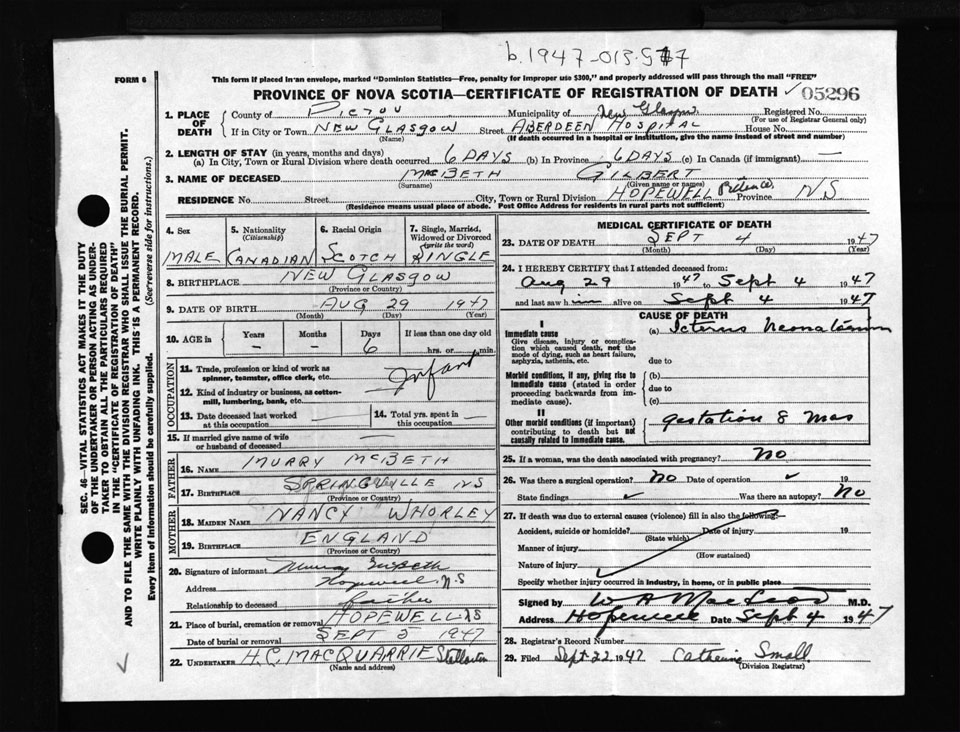 b. 1947-013517
FORM 6
This form if placed in an envelope, marked "Dominion Statistics—Free, penalty for improper use $300," and properly addressed will pass through the mail "FREE"
PROVINCE OF NOVA SCOTIA—CERTIFICATE OF REGISTRATION OF DEATH ✓ 05296
1. PLACE OF DEATH
County of PICTOU Municipality of New Glasgow Registered No.
(For use of Registrar General only)
If in City or Town NEW GLASGOW Street ABERDEEN HOSPITAL House No.
(Name) (If death occurred in a hospital or institution, give the name instead of street and number)
2. LENGTH OF STAY (in years, months and days)
(a) In City, Town or Rural Division where death occurred 6 DAYS (b) In Province 6 DAYS (c) In Canada (if immigrant) —
3. NAME OF DECEASED MACBETH GILBERT
(Surname) (Given name or names)
RESIDENCE No. Street City, Town or Rural Division HOPEWELL Pictou Co. Province N.S
(Residence means usual place of abode. Post Office Address for residents in rural parts not sufficient)
4. Sex MALE
5. Nationality (Citizenship) CANADIAN
6. Racial Origin SCOTCH
7. Single, Married, Widowed or Divorced (write the word) SINGLE
8. BIRTHPLACE NEW GLASGOW
(Province or Country)
9. DATE OF BIRTH AUG 29 1947
(Month) (Day) (Year)
10. AGE in Years Months Days If less than one day old
— — 6 hrs. or min.
OCCUPATION
11. Trade, profession or kind of work as spinner, teamster, office clerk, etc. Infant
12. Kind of industry or business, as cotton-mill, lumbering, bank, etc.
13. Date deceased last worked at this occupation —
14. Total yrs. spent in this occupation —
15. If married give name of wife or husband of deceased —
FATHER
16. NAME MURRY MCBETH
17. BIRTHPLACE SPRINGVILLE NS
(Province or Country)
MOTHER
18. MAIDEN NAME NANCY WHORLEY
19. BIRTHPLACE ENGLAND
(Province or Country)
20. Signature of informant Murray McBeth
Address Hopewell N.S
Relationship to deceased father
21. Place of burial, cremation or removal HOPEWELL NS
Date of burial or removal SEPT 5 1947
22. UNDERTAKER H.C. MACQUARRIE Stellarton
(Name and address)
MEDICAL CERTIFICATE OF DEATH
23. DATE OF DEATH SEPT 4 1947
(Month) (Day) (Year)
24. I HEREBY CERTIFY that I attended deceased from:
Aug 29 1947 to Sept 4 1947
and last saw him alive on Sept 4 1947
CAUSE OF DEATH
I
Immediate cause (a) Icterus Neonatorum
Give disease, injury or complication which caused death, not the mode of dying, such as heart failure, asphyxia, asthenia, etc.
due to
Morbid conditions, if any, giving rise to immediate cause (stated in order proceeding backwards from immediate cause).
(b)
due to
(c)
II
Other morbid conditions (if important) contributing to death but not causally related to immediate cause.
gestation 8 mos
25. If a woman, was the death associated with pregnancy? NO
26. Was there a surgical operation? NO Date of operation ✓
State findings ✓ Was there an autopsy? NO
27. If death was due to external causes (violence) fill in also the following:—
Accident, suicide or homicide? Date of injury 19
(State which)
Manner of injury
(How sustained)
Nature of injury
Specify whether injury occurred in industry, in home, or in public place
Signed by W A MacLeod M.D.
Address Hopewell Date Sept 4 1947
28. Registrar's Record Number
29. Filed Sept 22 1947 Catherine Small
(Division Registrar)
SEC. 46—VITAL STATISTICS ACT MAKES IT THE DUTY
OF THE UNDERTAKER OR PERSON ACTING AS UNDERTAKER
TO OBTAIN ALL THE PARTICULARS REQUIRED
IN THE "CERTIFICATE OF REGISTRATION OF DEATH"
AND TO FILE THE SAME WITH THE DIVISION REGISTRAR WHO SHALL ISSUE THE BURIAL PERMIT.
WRITE PLAINLY WITH UNFADING INK. THIS IS A PERMANENT RECORD.
Every item of information should be carefully supplied. (See reverse side for instructions.)